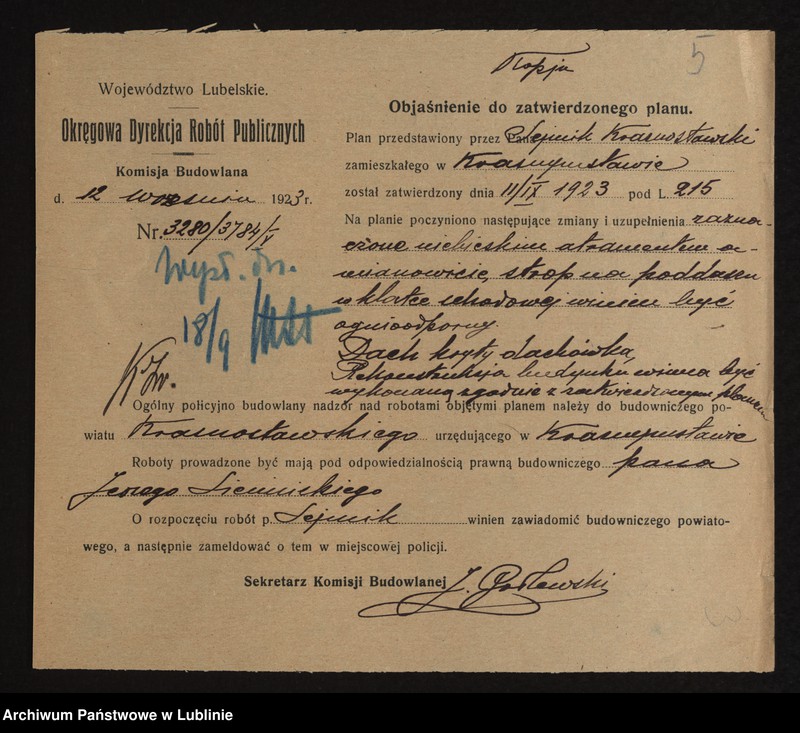 5
Kopja
Województwo Lubelskie.
Okręgowa Dyrekcja Robót Publicznych
Komisja Budowlana
d. 12 września 1923 r.
Nr. 3280/3784/V
Wyst. dn.
18/9
Objaśnienie do zatwierdzonego planu.
Plan przedstawiony przez Pana Sejmik Krasnostawski
zamieszkałego w Krasnymstawie
został zatwierdzony dnia 11/IX 1923 pod L. 215
Na planie poczyniono następujące zmiany i uzupełnienia zazna-
czone niebieskim atramentem a-
mianowicie, strop na poddaszu
w klatce schodowej winien być
ognioodporny.
Dach kryty dachówką,
Rekonstrukcja budynku winna być
wykonaną zgodnie z zatwierdzonym planem
Ogólny policyjno budowlany nadzór nad robotami objętymi planem należy do budowniczego po-
wiatu Krasnostawskiego urzędującego w Krasnymstawie
Roboty prowadzone być mają pod odpowiedzialnością prawną budowniczego pana
Jerzego Siennickiego
O rozpoczęciu robót p. Sejmik winien zawiadomić budowniczego powiato-
wego, a następnie zameldować o tem w miejscowej policji.
Sekretarz Komisji Budowlanej
Archiwum Państwowe w Lublinie